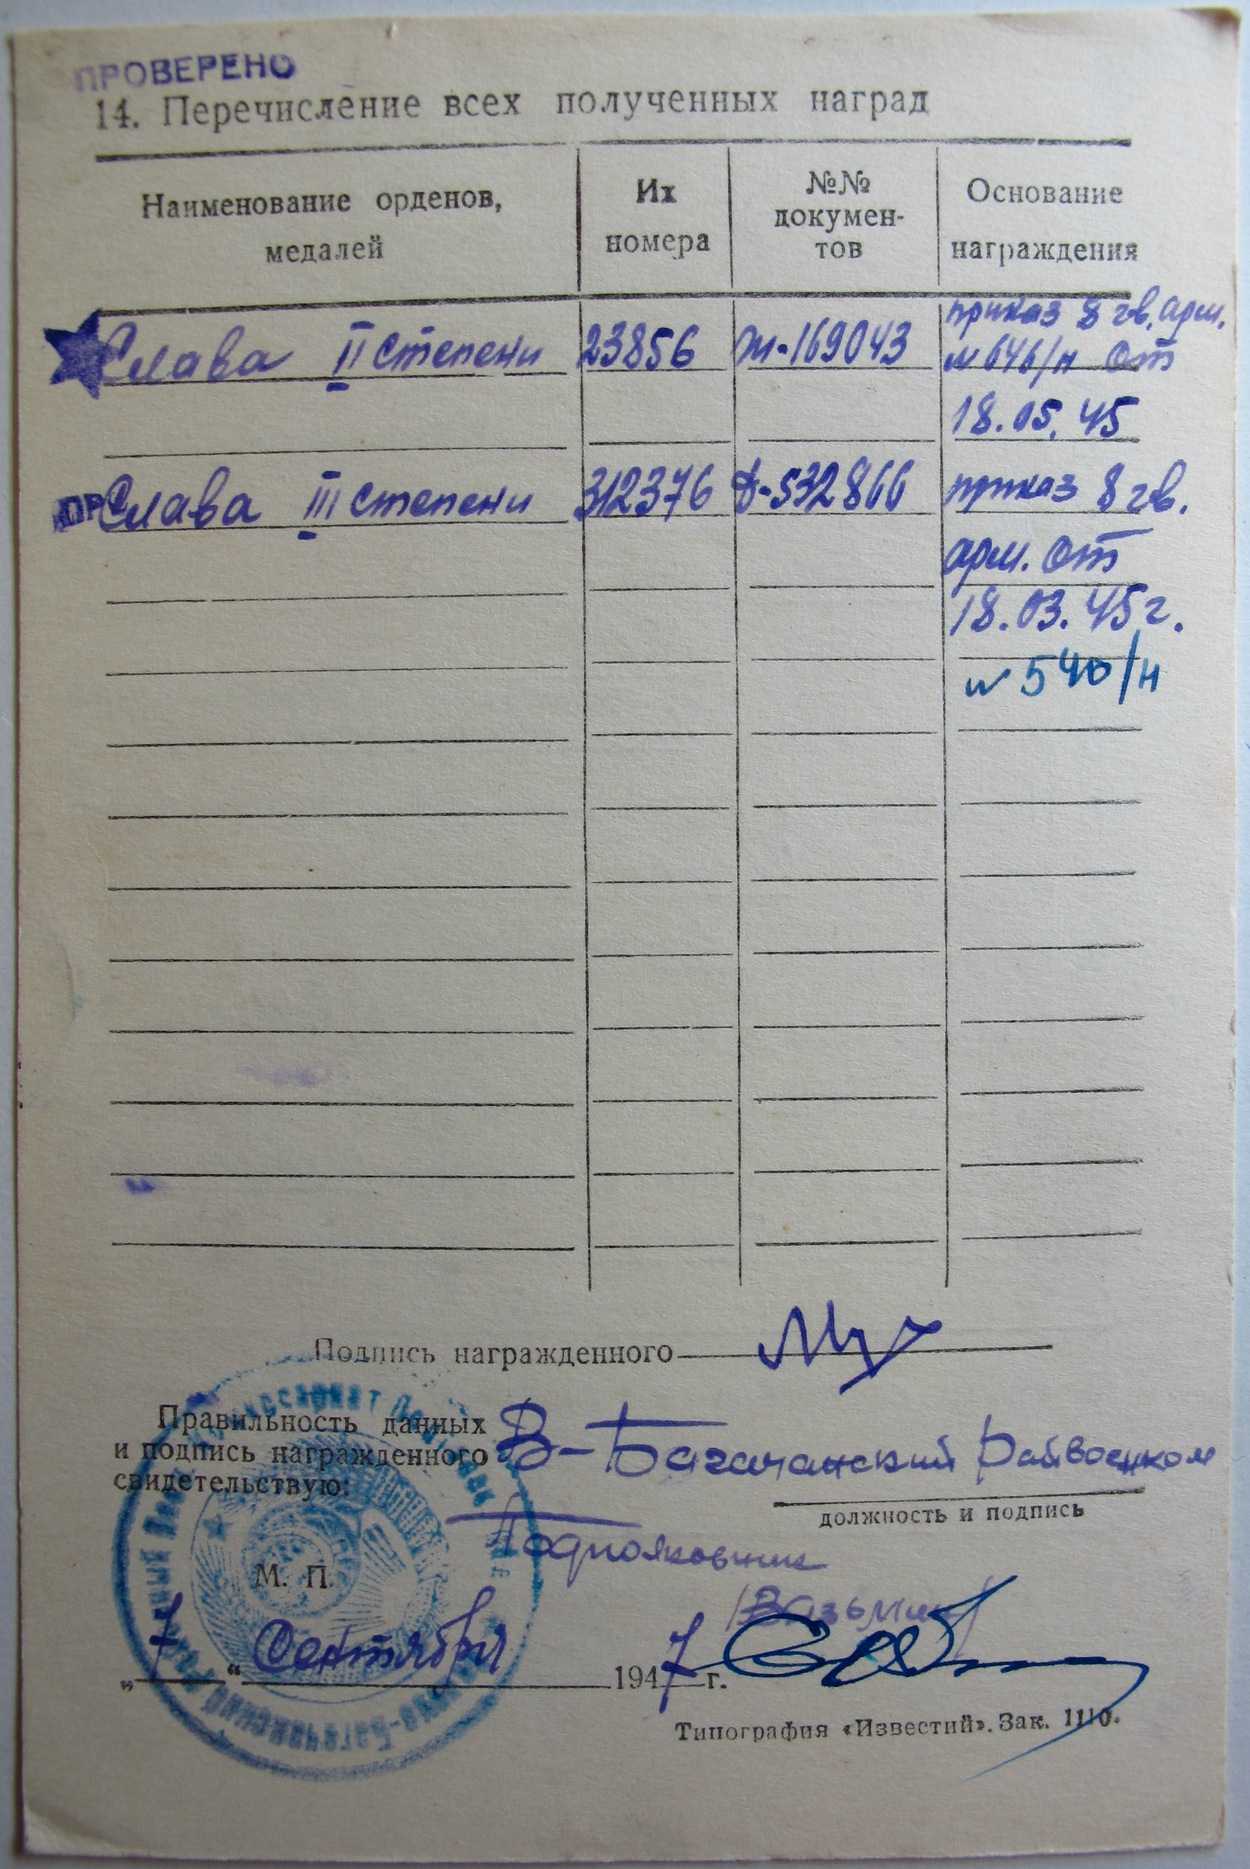 ПРОВЕРЕНО
14. Перечисление всех полученных наград
Наименование орденов, медалей
Их номера
№№ докумен-
тов
Основание награждения
Слава II степени 23856 Ж-169043 приказ 8 гв. арм.
№ 646/н от
18.05.45
ПР Слава III степени 312376 Д-532866 приказ 8 гв.
арм. от
18.03.45г.
№ 540/н
Подпись награжденного
Правильность данных
и подпись награжденного
свидетельствую:
В-Багачанский Райвоенком
должность и подпись
Подполковник
М. П.
„7“ Сентября 1947 г.
Типография «Известий». Зак. 1110.